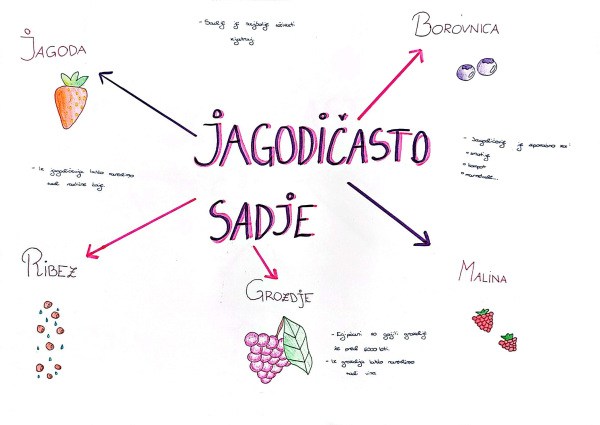 JAGODA
- Sadje je najbolje uživati
BOROVNICA
JAGODIČASTO
SADJE
- Iz jagodičevja lahko naredimo
tudi naravne barve.
- Jagodičevje je uporabno za:
smutije
kompot
marmelade...
RIBEZ
GROZDJE
MALINA
- Egipčani so gojili grozdje
že pred 6000 leti.
- Iz grozdja lahko naredimo
tudi vino